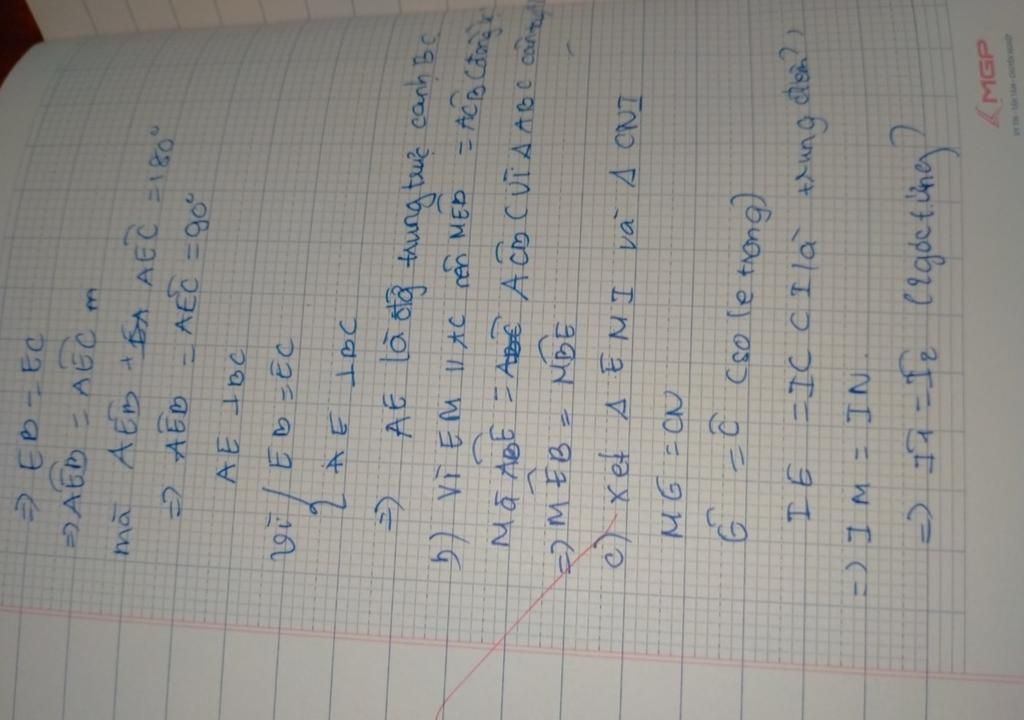 => EB = EC
=> AEB = AEC m
mà AEB + AEC = 180°
=> AEB = AEC = 90°
AE ⊥ BC
Vì { EB = EC
AE ⊥ BC
=> AE là đg trung trực cạnh BC
b) Vì EM // AC nên MEB = ACB (đồng
Mà ABE = ACB (Vì Δ ABC cân
=> MEB = MBE
c) xét Δ EMI và Δ CNI
ME = CN
E = C (so le trong)
IE = IC C I là trung điểm)
=> IM = IN
=> I1 = I2 (2 góc t.ứng)
MGP